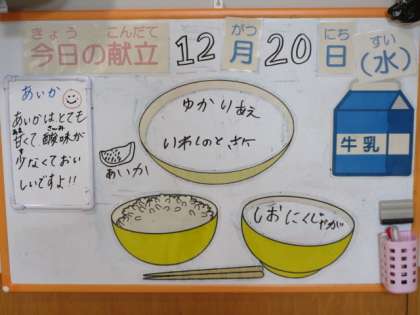 きょう こんだて がつ にち すい
今日の献立 12月20日(水)
あいか
あいかはとても
甘くて、酸味が
少なくておい
しいですよ!!
ゆかりあえ
いわしの
あいか
牛乳
しおにくじゃが